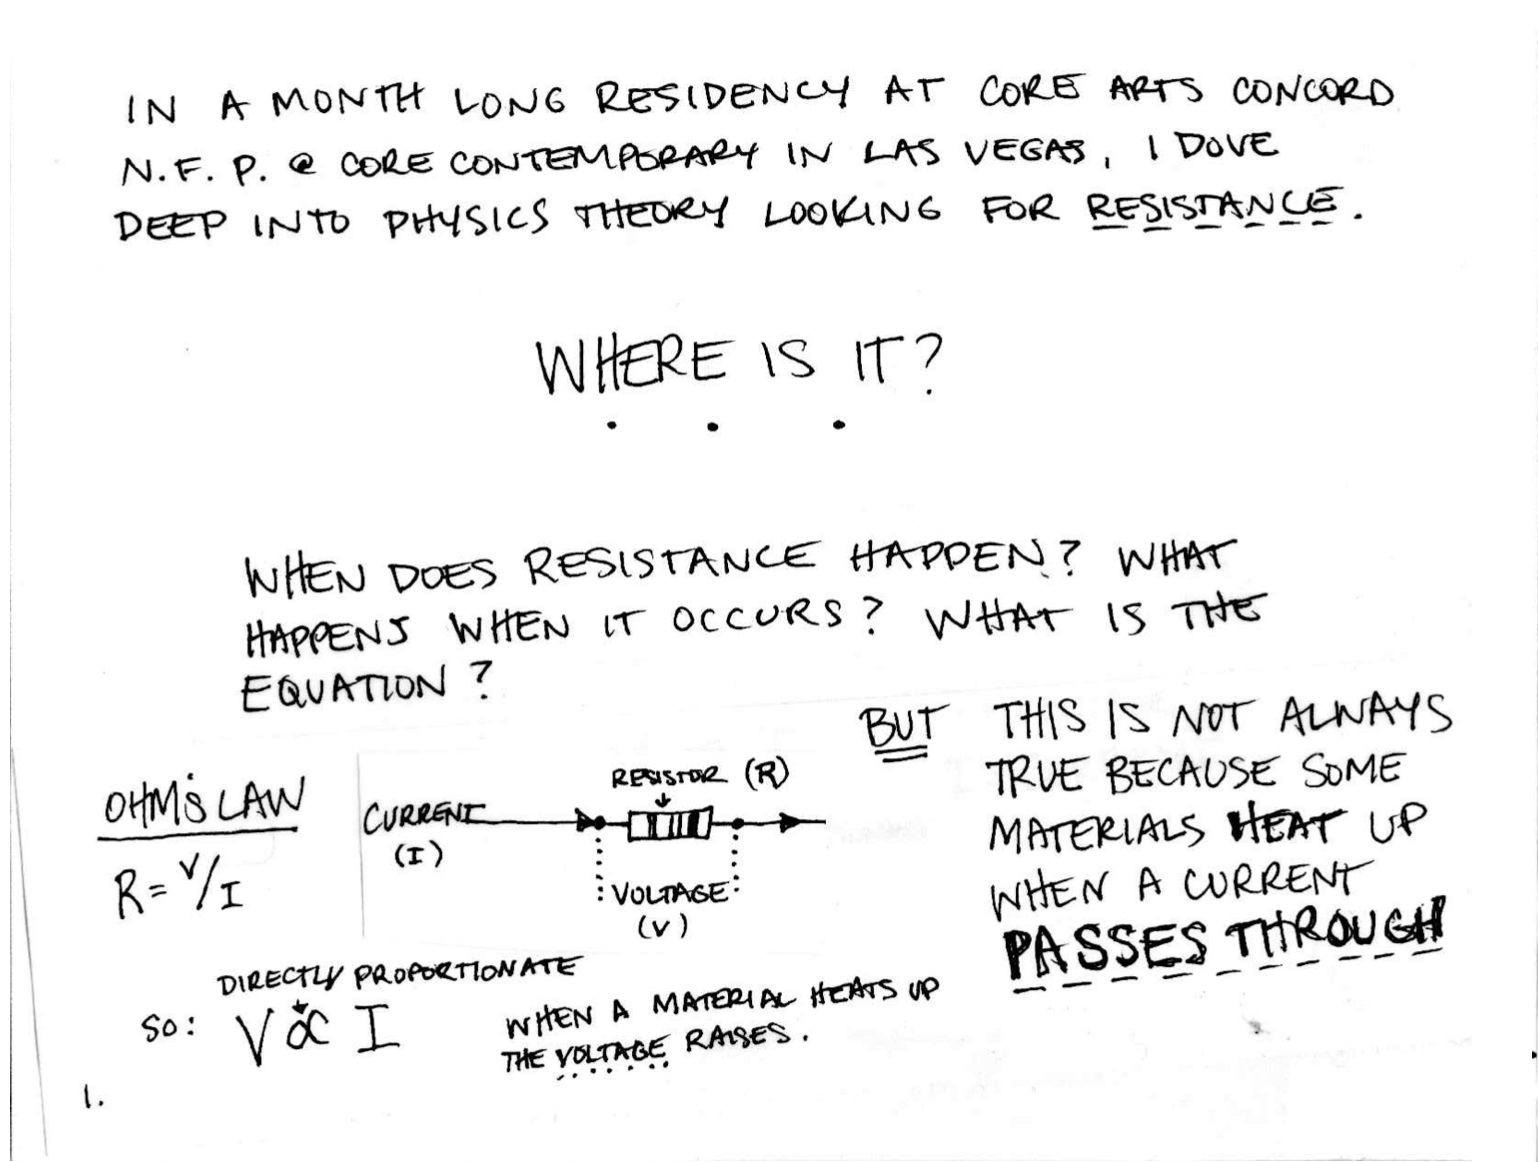 IN A MONTH LONG RESIDENCY AT CORE ARTS CONCORD
N.F.P. @ CORE CONTEMPORARY IN LAS VEGAS, I DOVE
DEEP INTO PHYSICS THEORY LOOKING FOR RESISTANCE.
WHERE IS IT?
WHEN DOES RESISTANCE HAPPEN? WHAT
HAPPENS WHEN IT OCCURS? WHAT IS THE
EQUATION?
OHM'S LAW
R = V/I
CURRENT
(I)
RESISTOR (R)
VOLTAGE
(V)
BUT THIS IS NOT ALWAYS
TRUE BECAUSE SOME
MATERIALS HEAT UP
WHEN A CURRENT
PASSES THROUGH
DIRECTLY PROPORTIONATE
SO: V ∝ I
WHEN A MATERIAL HEATS UP
THE VOLTAGE RAISES.
1.